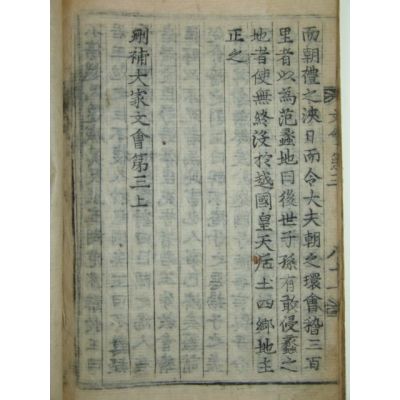 文會
而朝禮之浹日而令大夫朝之環會稽三百
里者以為范蠡地曰後世子孫有敢侵蠡之
地者使無終沒於越國皇天后土四鄉地主
正之
刪補大家文會第三上